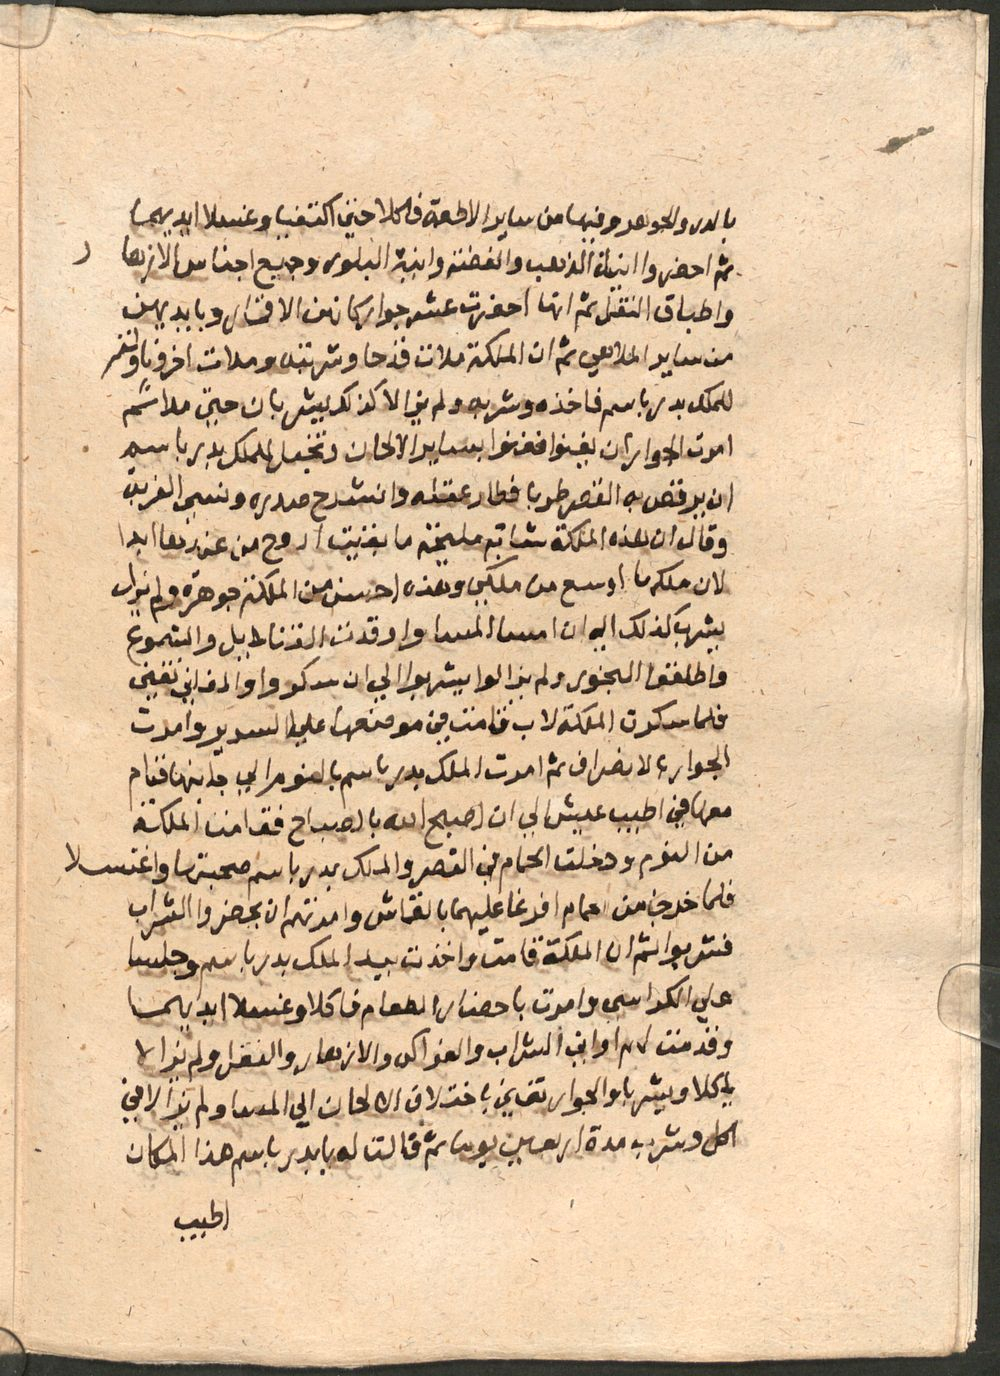 بالدر والجوهر وفيها من ساير الاطعمة فاكلا حتي اكتفيا وغسلا ايديهما
ثم احضروا انية الذهب والفضة وانية البلور وجميع اجناس الازهار
واطباق النقل ثم انها احضرت عشر جوار كانهن الاقمار وبايديهن
من ساير الملاهي ثم ان الملكة ملات قدحا وشربته وملات اخر وناولته
للملك بدر باسم فاخذه وشربه ولم يزالا كذلك يشربان حتي ملا ثم
امرت الجوار ان يغنوا فغنوا بساير الالحان وتخيل للملك بدر باسم
ان يرقص به القصر طربا فطار عقله وانشرح صدره ونسي الغربة
وقال ان هذه الملكة شابة مليحة ما بقيت اروح من عندها ابدا
لان ملكها اوسع من ملكي وهذه احسن من الملكة جوهرة ولم يزل
يشرب كذلك الي ان امسا المسا واوقدت القناطيل والشموع
واطلقوا البخور ولم يزالوا يشربوا الي ان سكروا والمغاني تغني
فلما سكرت الملكة لاب قامت من موضعها علي السرير وامرت
الجوار بالانصراف ثم امرت الملك بدر باسم بالنوم الي جانبها فنام
معها في اطيب عيش الي ان اصبح الله بالصباح فقامت الملكة
من النوم ودخلت الحمام في القصر والملك بدر باسم صحبتها واغتسلا
فلما خرجا من الحمام افرغا عليهما بالقماش وامرتهم ان يحضروا الشراب
فشربوا ثم ان الملكة قامت واخذت بيد الملك بدر باسم وجلسا
علي الكراسي وامرت باحضار الطعام فاكلا وغسلا ايديهما
وقدمت لهم اواني الشراب والفواكه والازهار والنقل ولم يزالا
ياكلا ويشربا والجوار تغني باختلاف الالحان الي المسا ولم يزالا في
اكل وشرب مدة اربعين يوما ثم قالت له يا بدر باسم هذا المكان
اطيب